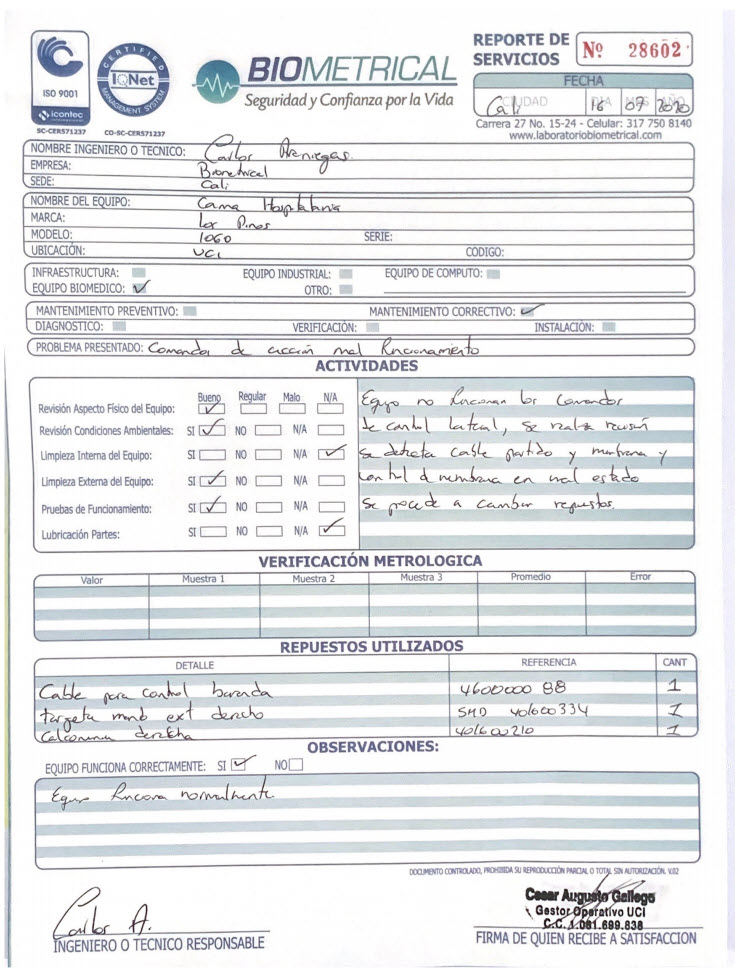 ISO 9001
icontec
SC-CER571237
CERTIFIED
IQNet
MANAGEMENT SYSTEM
CO-SC-CER571237
BIOMETRICAL
Seguridad y Confianza por la Vida
REPORTE DE SERVICIOS
Nº 28602
FECHA
CIUDAD DIA MES AÑO
Cali 16 07 2020
Carrera 27 No. 15-24 - Celular: 317 750 8140
www.laboratoriobiometrical.com
NOMBRE INGENIERO O TECNICO: Carlos Areniegas.
EMPRESA: Biometrical
SEDE: Cali
NOMBRE DEL EQUIPO: Cama Hospitalaria
MARCA: Los Pinos
MODELO: 1060 SERIE:
UBICACIÓN: UCI CODIGO:
INFRAESTRUCTURA: EQUIPO INDUSTRIAL: EQUIPO DE COMPUTO:
EQUIPO BIOMEDICO: ✓ OTRO:
MANTENIMIENTO PREVENTIVO: MANTENIMIENTO CORRECTIVO: ✓
DIAGNOSTICO: VERIFICACIÓN: INSTALACIÓN:
PROBLEMA PRESENTADO: Comandos de acción mal funcionamiento
ACTIVIDADES
Bueno Regular Malo N/A
Revisión Aspecto Físico del Equipo: ✓
Revisión Condiciones Ambientales: SI ✓ NO N/A
Limpieza Interna del Equipo: SI NO N/A ✓
Limpieza Externa del Equipo: SI ✓ NO N/A
Pruebas de Funcionamiento: SI ✓ NO N/A
Lubricación Partes: SI NO N/A ✓
Equipo no funcionan los comandos
de control lateral, se realiza revisión
se detecta cable partido y membrana y
control d membrana en mal estado
se procede a cambiar repuestos.
VERIFICACIÓN METROLOGICA
Valor Muestra 1 Muestra 2 Muestra 3 Promedio Error
REPUESTOS UTILIZADOS
DETALLE REFERENCIA CANT
Cable para control baranda 4600000 88 1
targeta mand ext derecho SMD 401600334 1
Calcomania derecha 401600210 1
OBSERVACIONES:
EQUIPO FUNCIONA CORRECTAMENTE: SI ✓ NO
Equipo funciona normalmente.
DOCUMENTO CONTROLADO, PROHIBIDA SU REPRODUCCIÓN PARCIAL O TOTAL SIN AUTORIZACIÓN. V.02
Carlos A.
INGENIERO O TECNICO RESPONSABLE
Cesar Augusto Gallego
Gestor Operativo UCI
C.C. 1.061.699.838
FIRMA DE QUIEN RECIBE A SATISFACCION